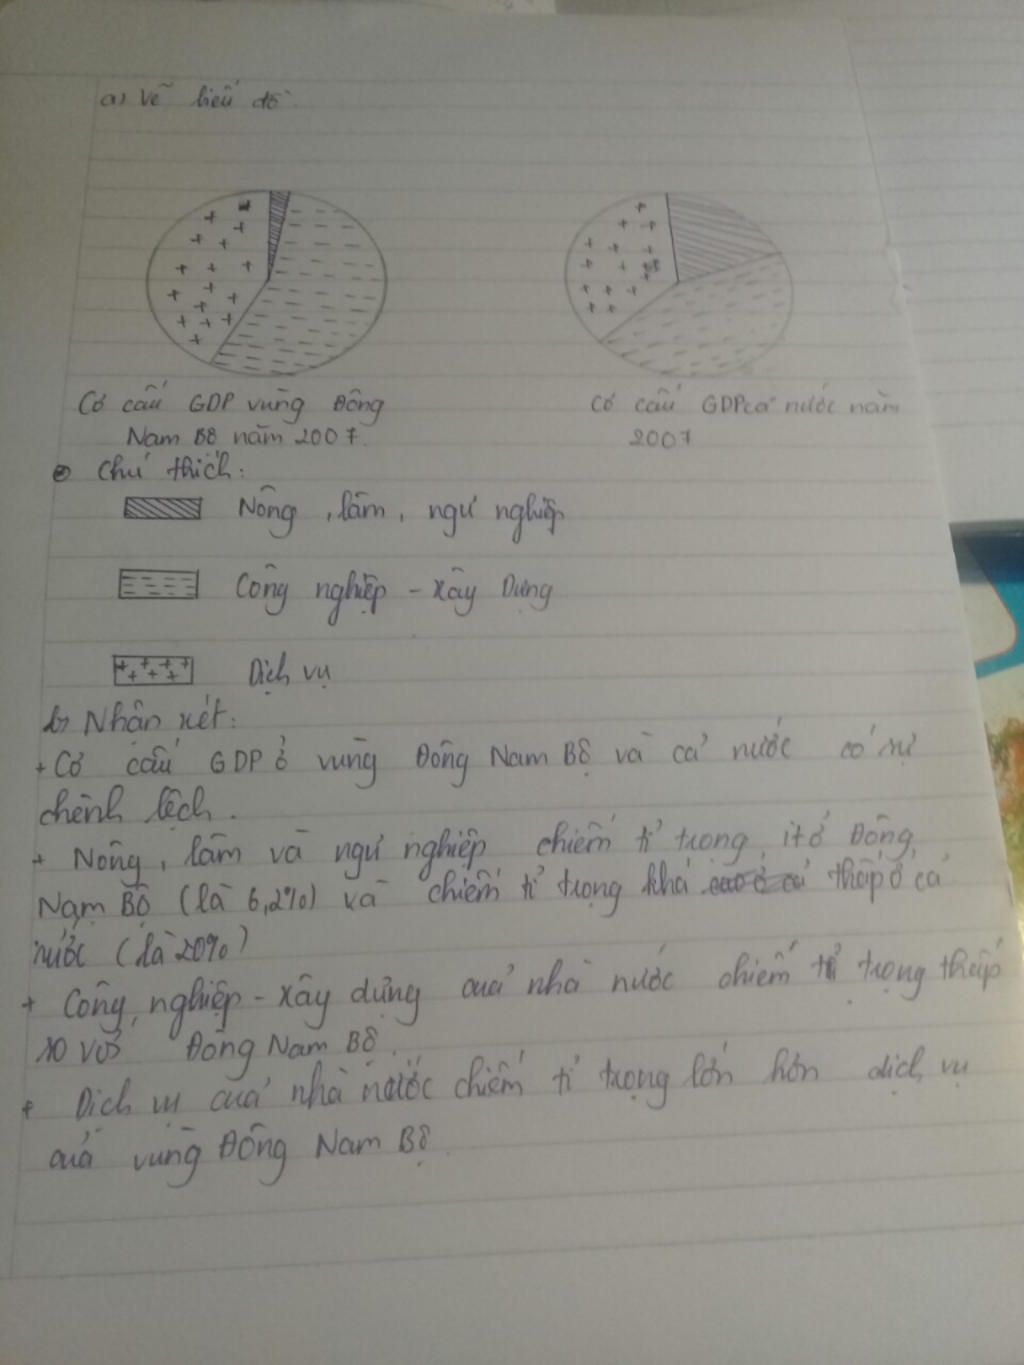 a) Vẽ biểu đồ
Cơ cấu GDP vùng Đông
Nam Bộ năm 2007.
Cơ cấu GDP cả nước năm
2007
Chú thích:
Nông, lâm, ngư nghiệp
Công nghiệp - Xây Dựng
Dịch vụ
b) Nhận xét:
+ Cơ cấu GDP ở vùng Đông Nam Bộ và cả nước có sự
chênh lệch.
+ Nông, lâm và ngư nghiệp chiếm tỉ trọng ít ở Đông
Nam Bộ (là 6,2%) và chiếm tỉ trọng khá thấp ở cả
nước (là 20%)
+ Công nghiệp - Xây dựng của nhà nước chiếm tỉ trọng thấp
so với Đông Nam Bộ.
+ Dịch vụ của nhà nước chiếm tỉ trọng lớn hơn dịch vụ
của vùng Đông Nam Bộ.